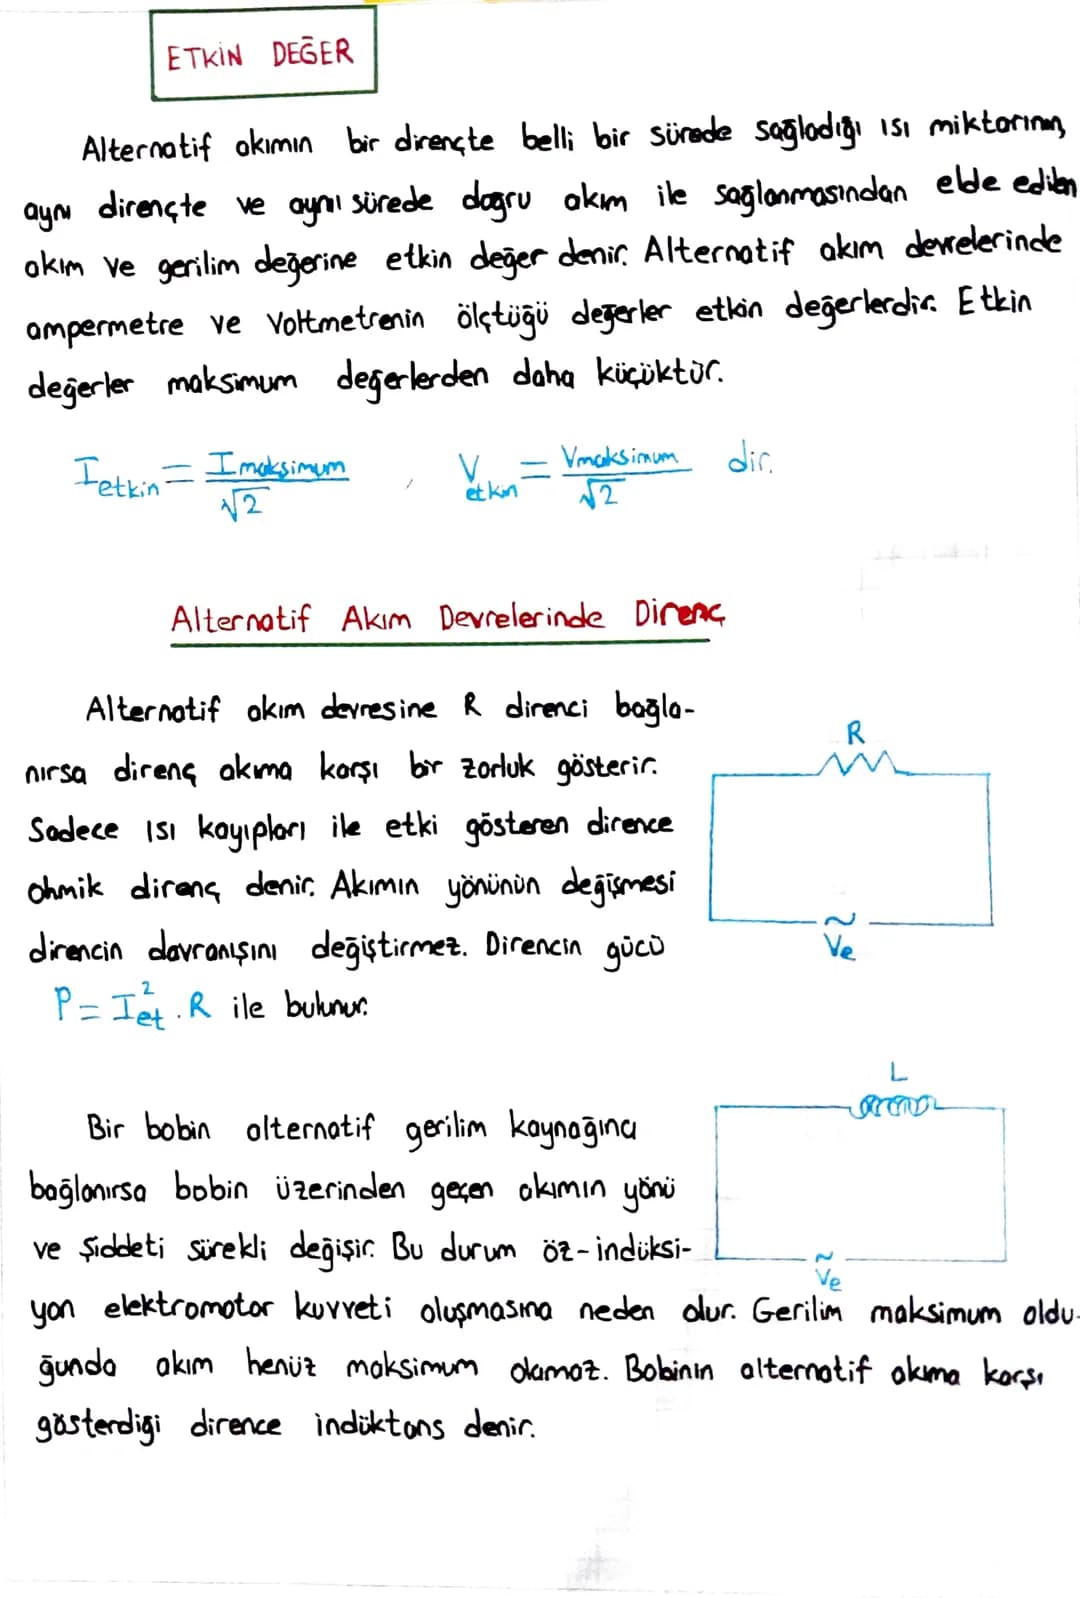 ETKİN DEĞER
Alternatif akımın bir dirençte belli bir sürede sağladığı ısı miktarının,
aynı dirençte ve aynı sürede doğru akım ile sağlanmasından elde edilen
akım ve gerilim değerine etkin değer denir. Alternatif akım devrelerinde
ampermetre ve Voltmetrenin ölçtüğü değerler etkin değerlerdir. Etkin
değerler maksimum değerlerden daha küçüktür.
I etkin = I maksimum / √2 , V etkin = Vmaksimum / √2 dir.
Alternatif Akım Devrelerinde Direnç
Alternatif akım devresine R direnci bağla-
nırsa direnç akıma karşı bir zorluk gösterir.
Sadece ısı kayıpları ile etki gösteren dirence
ohmik direnç denir. Akımın yönünün değişmesi
direncin davranışını değiştirmez. Direncin gücü
P = I²et . R ile bulunur.
R
~
Ve
Bir bobin alternatif gerilim kaynağına
bağlanırsa bobin üzerinden geçen akımın yönü
ve şiddeti sürekli değişir. Bu durum öz-indüksi-
yon elektromotor kuvveti oluşmasına neden olur. Gerilim maksimum oldu-
ğunda akım henüz maksimum olamaz. Bobinin alternatif akıma karşı
gösterdiği dirence indüktans denir.
L
~
Ve